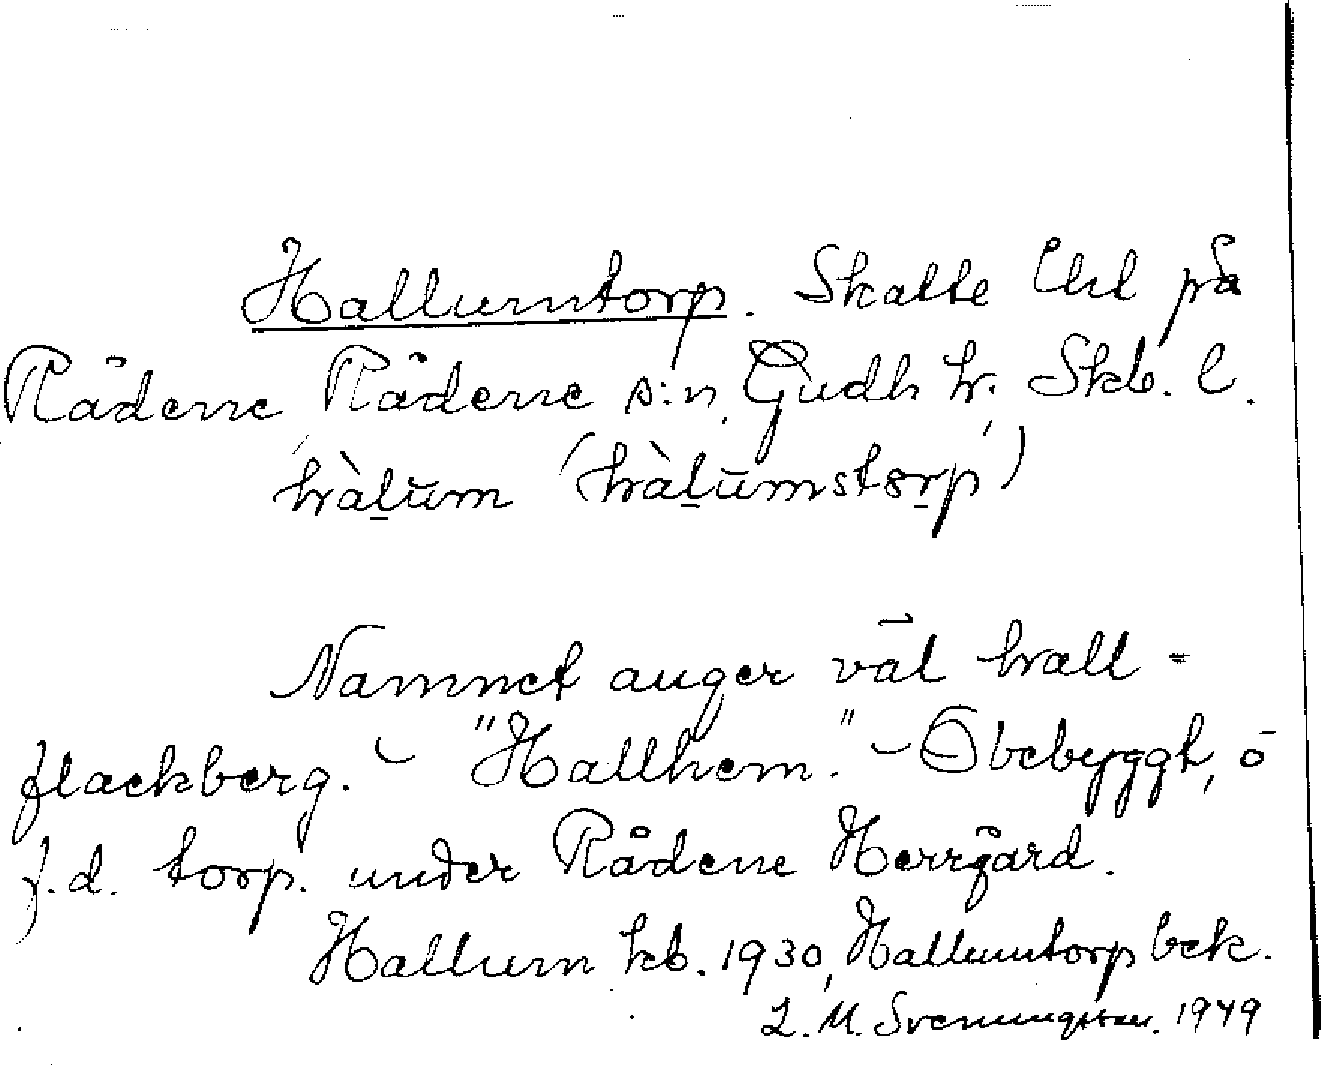 Hallumtorp. Skatte lht på
Rådene, Rådene s:n, Gudh hr; Skb. l.
hàl̲ūm (hàl̲ūmstor̲p)
Namnet anger väl hall-
flackberg. – "Hallhem." – Obebyggt, ö
f.d. torp. under Rådene Herrgård.
Hallum kb. 1930, Hallumtorp bek.
L. M. Svenungsson. 1949